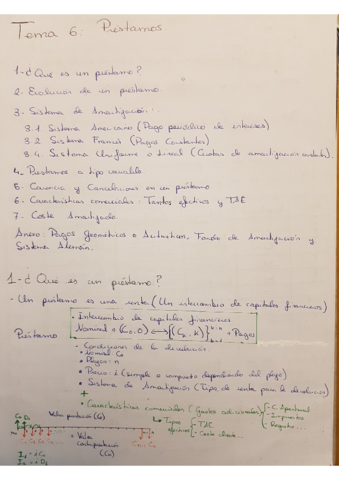 Tema 6. Préstamos
1-¿Qué es un préstamo?
2. Evolución de un préstamo.
3. Sistema de Amortización:
3.1 Sistema Americano (Pago periódico de intereses)
3.2 Sistema Francés (Pagos Constantes)
3.4. Sistema Uniforme o lineal (Cuotas de amortización constante).
4. Préstamos a tipo variable
5. Carencia y Cancelaciones en un préstamo
6. Características comerciales: Tantos efectivos y TAE
7. Coste Amortizado.
Anexo: Pagos Geométricos o Aritméticos, Fondo de Amortización y
Sistema Alemán.
1-¿Qué es un préstamo?
- Un préstamo es una renta (Un intercambio de capitales financieros)
• Intercambio de capitales financieros
Nominal → (C0, 0) ↔ {(Ck, k)} k=n k=1 → Pagos
Préstamo
• Condiciones de la devolución
• Nominal: C0
• Plazo: n
• Precio: i (simple o compuesto dependiendo del plazo)
• Sistema de Amortización (Tipo de renta para la devolución)
+
• Características comerciales (gastos adicionales)
- C. Apertura
- Impuestos
- Registro...
C0
Valor prestación (C0)
• Valor
contraprestación
(C0)
→ Tipos efectivos
- TAE
- Coste cliente...